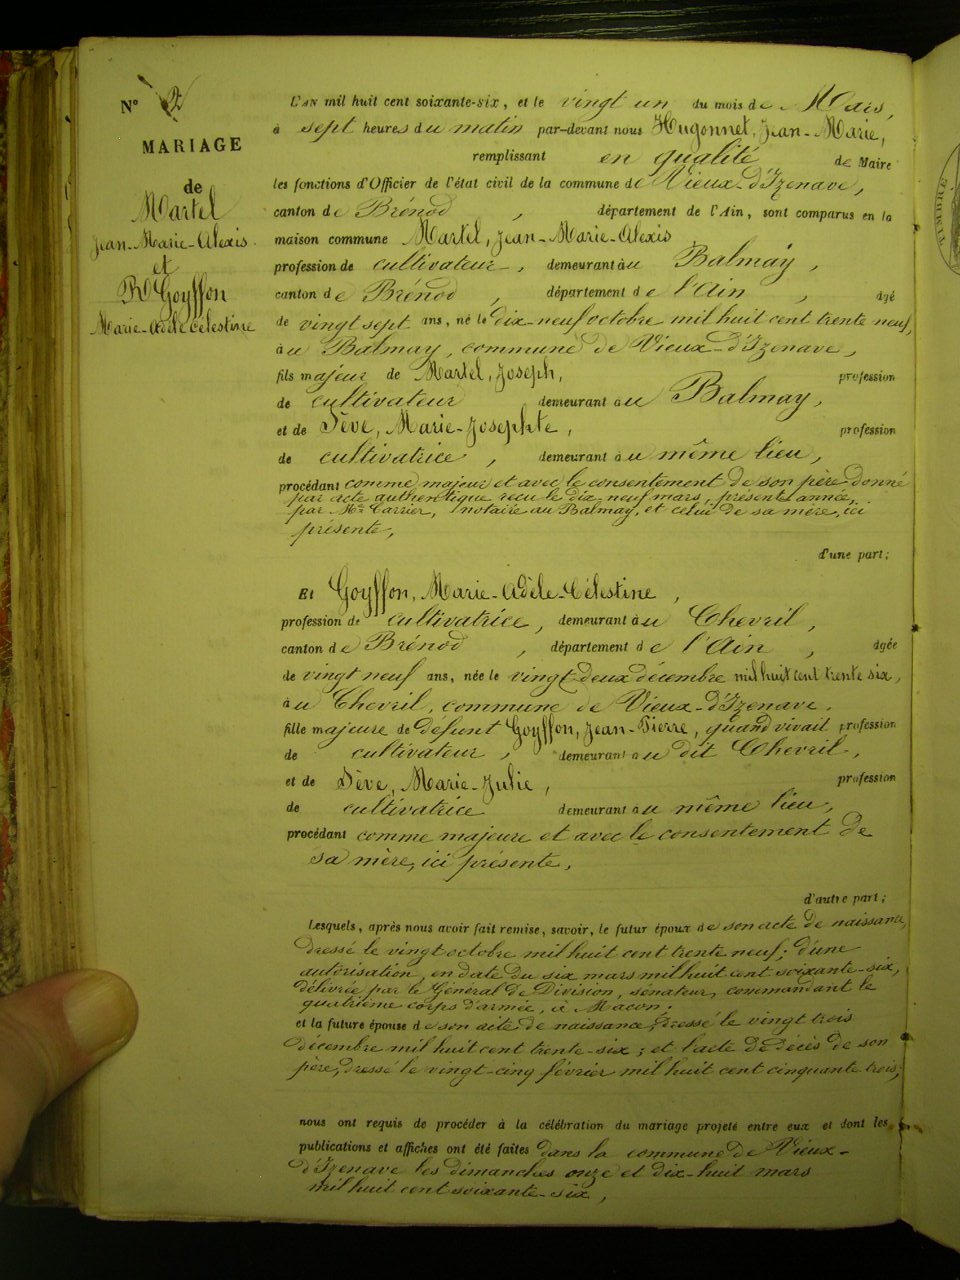 N° 2
MARIAGE
de
Martel
Jean-Marie-Alexis
et
Goyffon
Marie-Adèle Célestine
L'AN mil huit cent soixante-six, et le vingt un du mois de Mars,
à sept heures du matin par-devant nous Hugonnet, Jean-Marie,
remplissant en qualité de Maire
les fonctions d'Officier de l'état civil de la commune de Vieux-d'Izenave,
canton de Brénod, département de l'Ain, sont comparus en la
maison commune Martel, Jean-Marie-Alexis
profession de cultivateur, demeurant au Balmay,
canton de Brénod, département de l'Ain, âgé
de vingt sept ans, né le dix-neuf octobre mil huit cent trente neuf,
à u Balmay, commune de Vieux-d'Izenave,
fils majeur de Martel, Joseph, profession
de cultivateur demeurant au Balmay,
et de Sève, Marie-Josephte, profession
de cultivatrice, demeurant au même lieu,
procédant comme majeur et avec le consentement de son père donné
par acte authentique reçu le dix-neuf mars, présente année,
par Me Carrier, notaire au Balmay, et celui de sa mère, ici
présente,
d'une part;
Et Goyffon, Marie-Adèle-Célestine,
profession de cultivatrice, demeurant au Chevril,
canton de Brénod, département de l'Ain, âgée
de vingt neuf ans, née le vingt-deux décembre mil huit cent trente six,
à u Chevril, commune de Vieux-d'Izenave,
fille majeure de défunt Goyffon, Jean-Pierre, quand vivait profession
de cultivateur, demeurant au dit Chevril,
et de Sève, Marie-Julie, profession
de cultivatrice demeurant au même lieu,
procédant comme majeure et avec le consentement de
sa mère, ici présente,
d'autre part;
Lesquels, après nous avoir fait remise, savoir, le futur époux de son acte de naissance,
dressé le vingt octobre mil huit cent trente neuf; d'une
autorisation, en date du six mars mil huit cent soixante-six,
délivrée par le Général de Division, sénateur, commandant le
quatrième corps d'armée, à Macon;
et la future épouse de son acte de naissance, dressé le vingt trois
décembre mil huit cent trente-six; et l'acte de décès de son
père, dressé le vingt-cinq février mil huit cent cinquante trois;
nous ont requis de procéder à la célébration du mariage projeté entre eux et dont les
publications et affiches ont été faites dans la commune de Vieux-
d'Izenave les dimanches onze et dix-huit mars
mil huit cent soixante-six,
TIMBRE